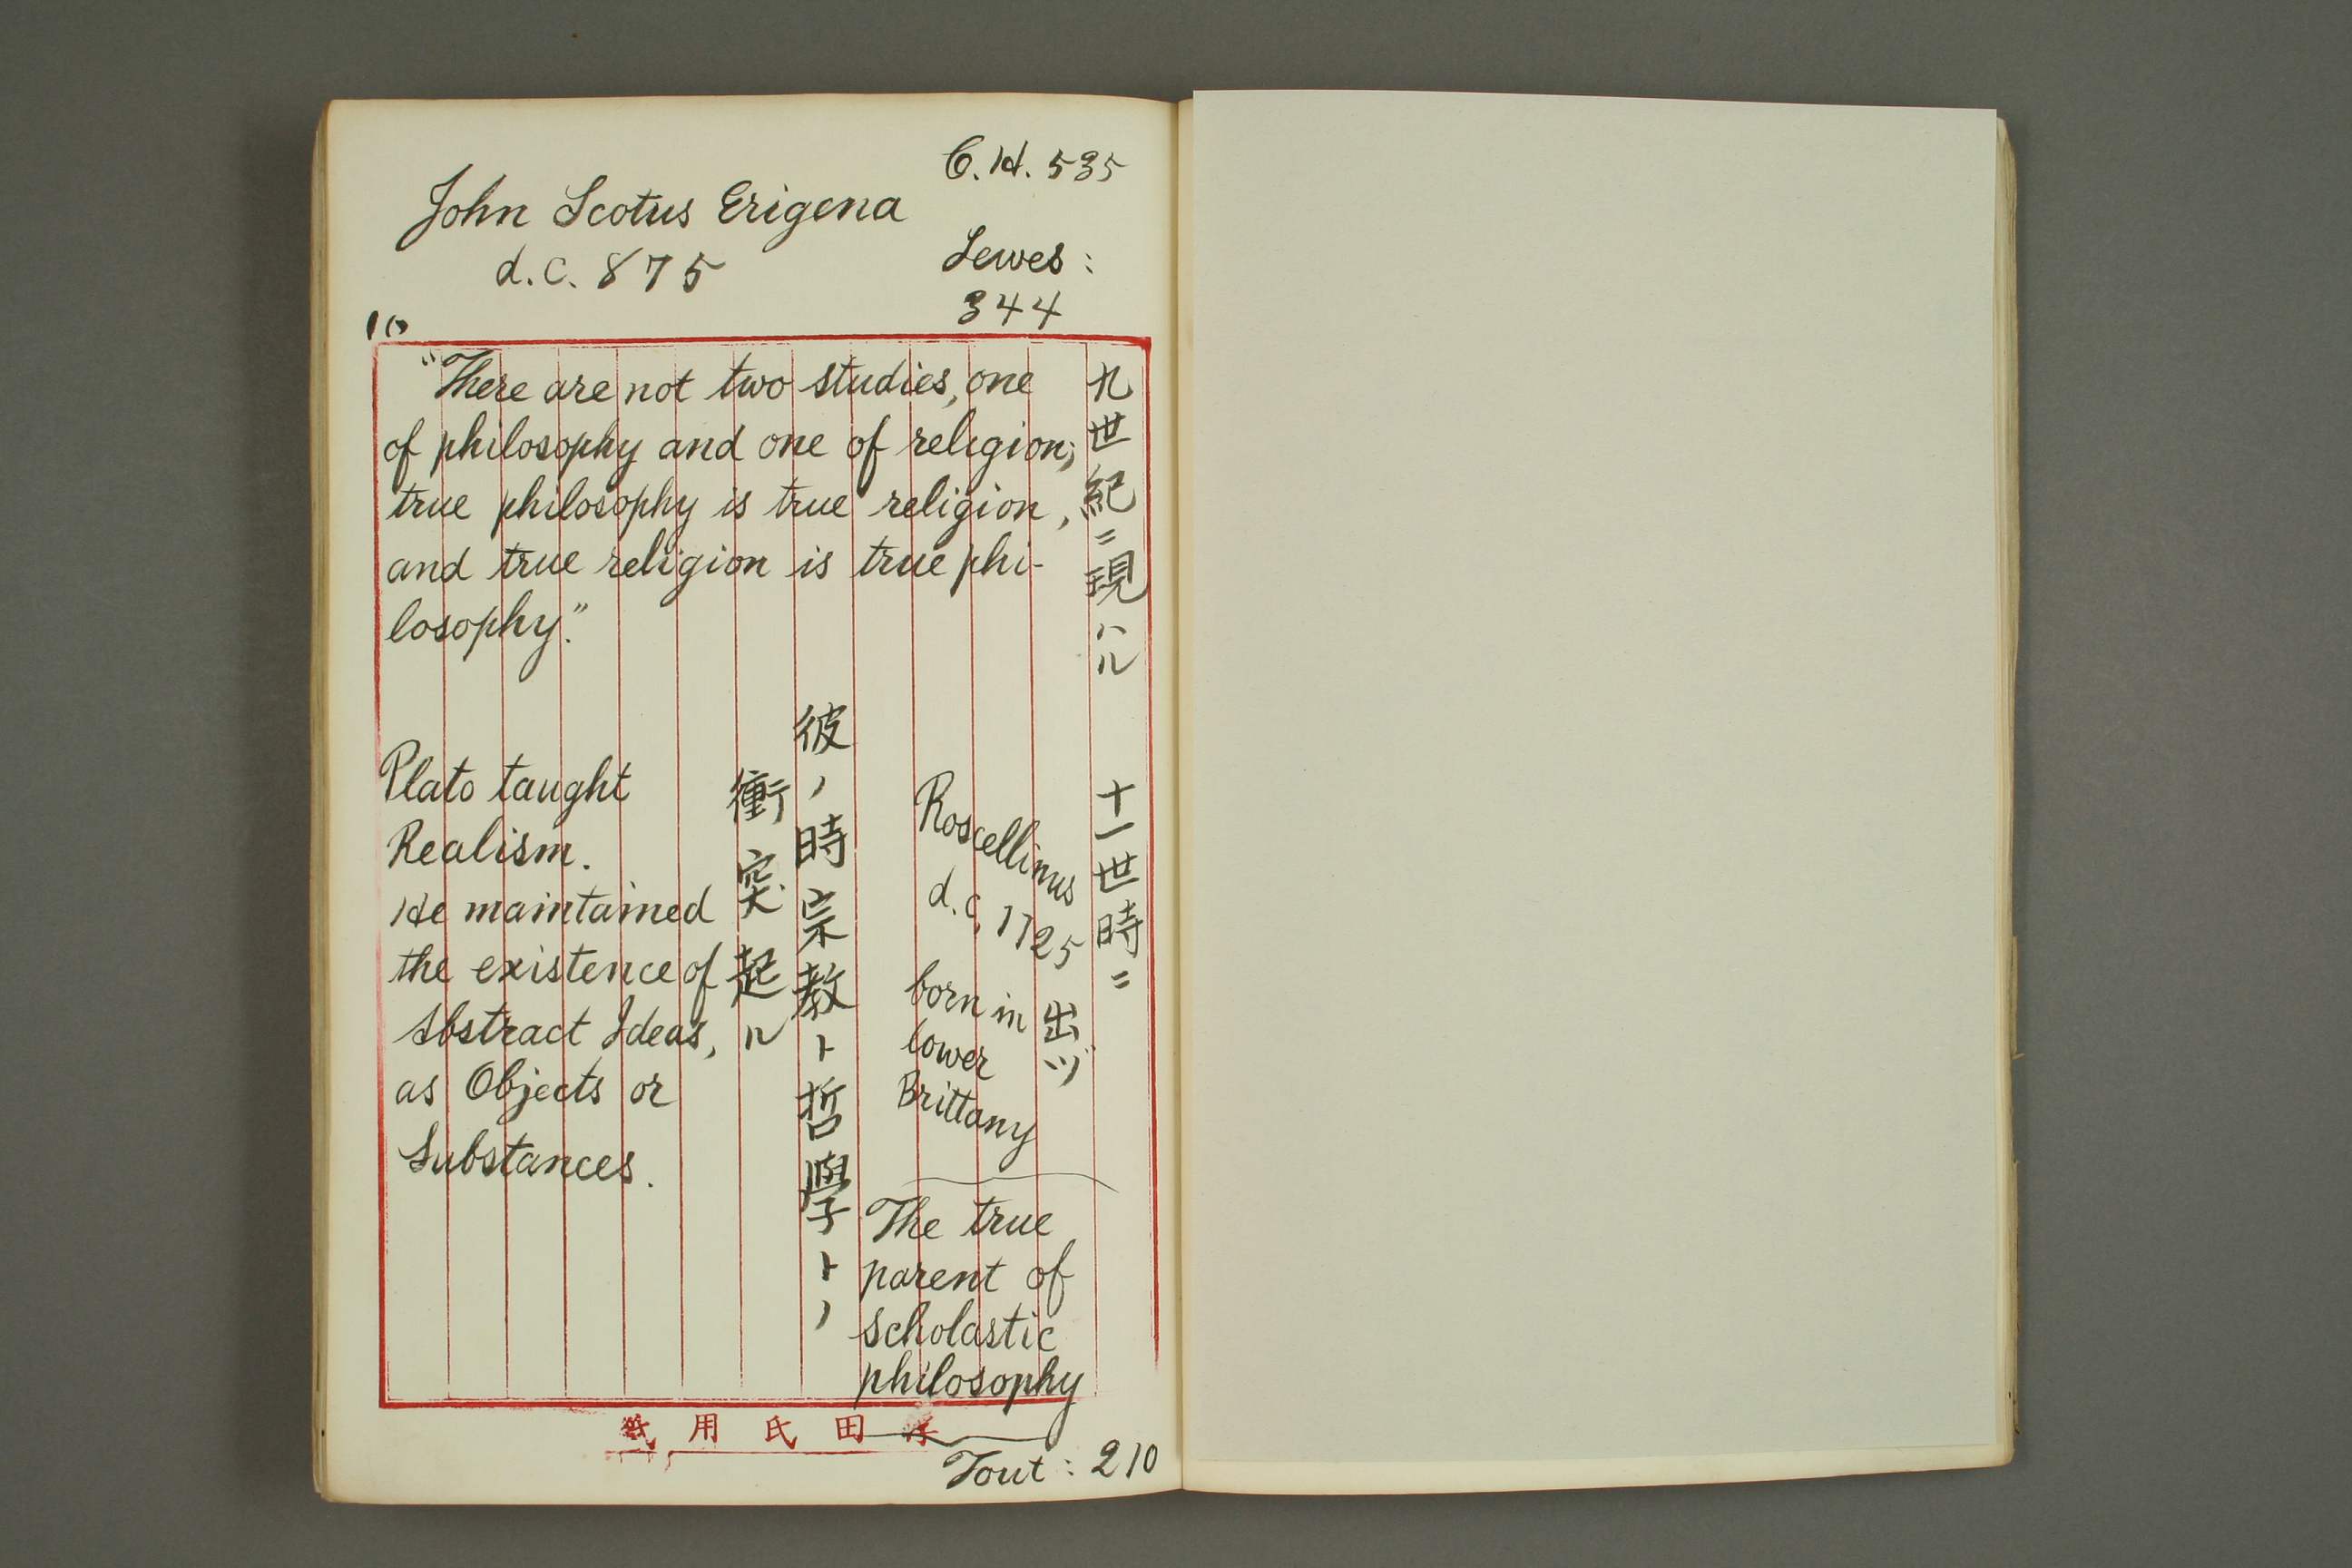 C.H. 535
John Scotus Erigena
d.c. 875
Lewes:
344
10
"There are not two studies, one
of philosophy and one of religion;
true philosophy is true religion,
and true religion is true phi-
losophy."
九世紀ニ現ハル
十一世時ニ
出ヅ
Roscellinus
d.c, 1125
born in
lower
Brittany
The true
parent of
scholastic
philosophy
Tout: 210
彼ノ時宗教ト哲學トノ
衝突起ル
Plato taught
Realism.
He maintained
the existence of
Abstract Ideas,
as Objects or
Substances.
田氏用紙